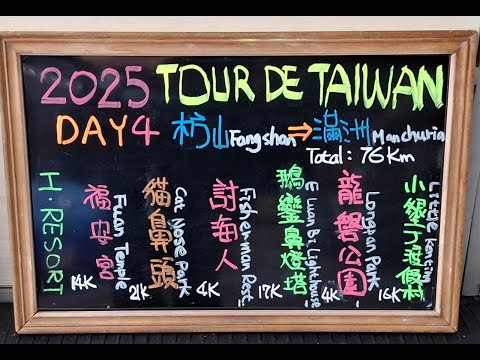 2025 TOUR DE TAIWAN
DAY4 枋山Fangshan⇒滿洲Manchuria
Total: 76Km
H.RESORT
14K
福安宮
Fuan Temple
21K
貓鼻頭
Cat Nose Park
4K
討海人
Fisherman Rest.
17K
鵝鑾鼻燈塔
E Luan Bi Lighthouse
4K
龍磐公園
Longpan Park
16K
小墾丁渡假村
Little Kenting